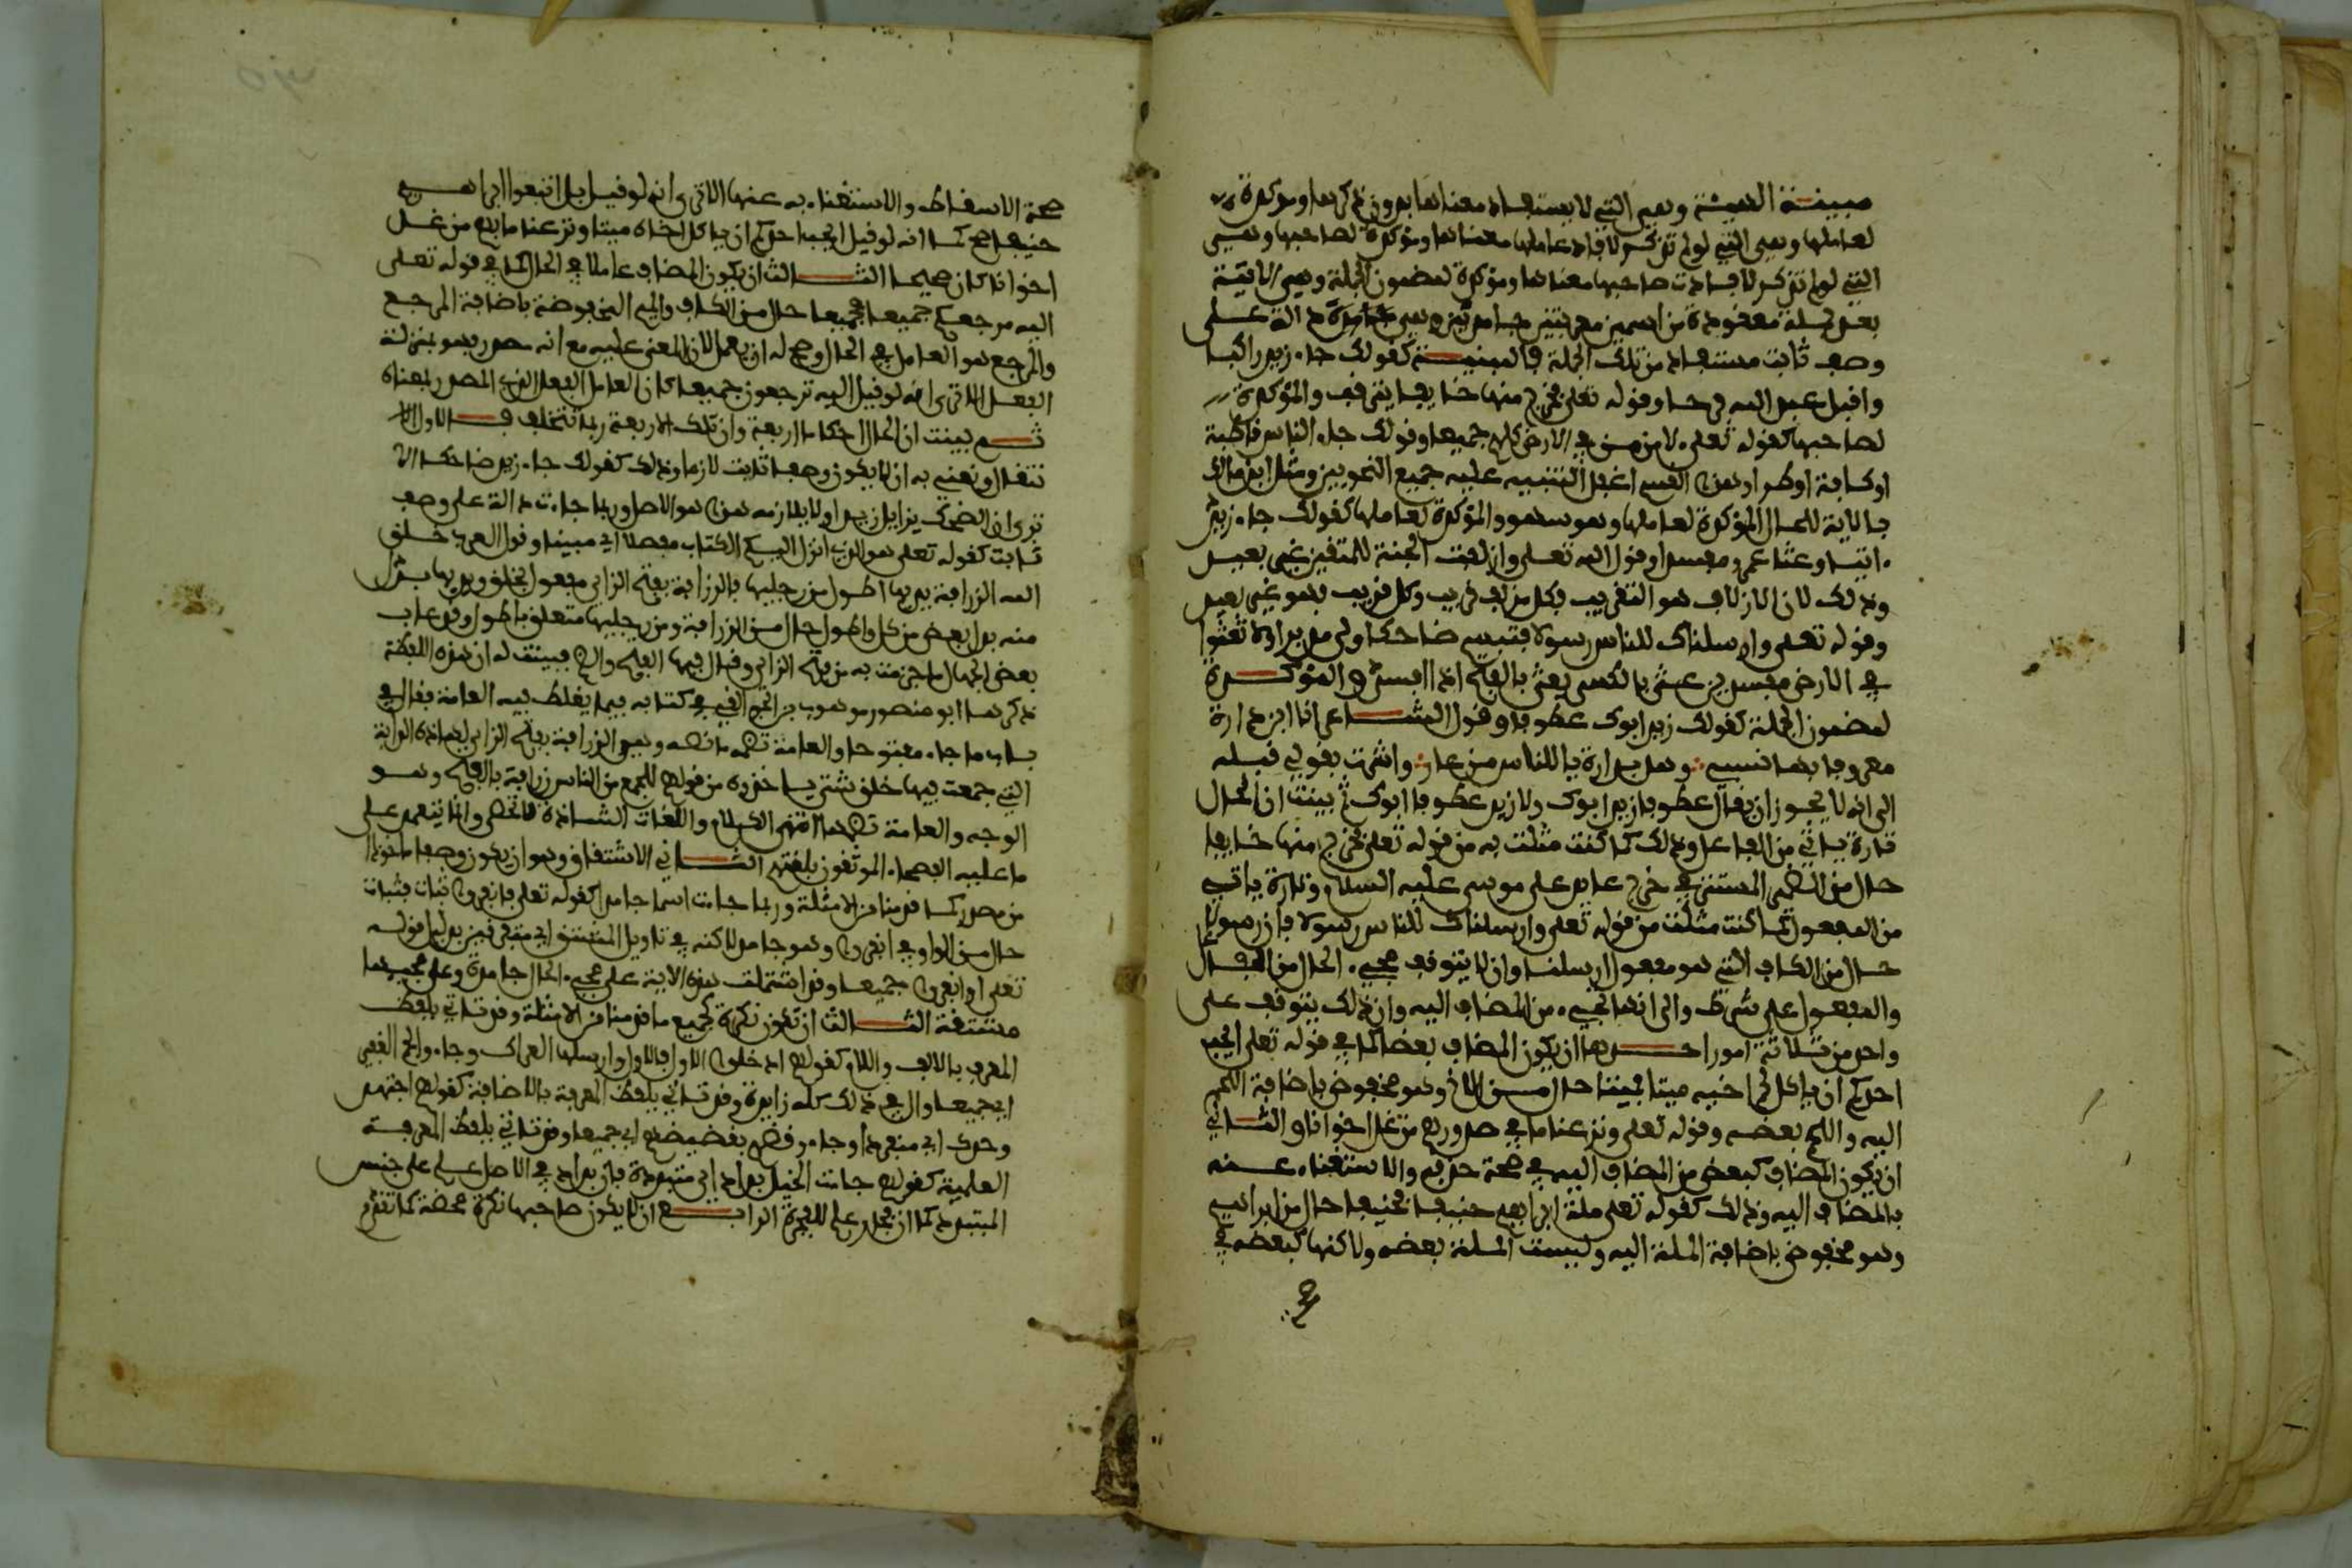 مبينة الهيئة وهي التي لا يستفاد معناها بدون ذكرها ومؤكدة
لعاملها وهي التي لو لم تذكر لافاد عاملها معناها ومؤكدة لصاحبها وهي
التي لو لم تذكر لافادت صاحبها معناها ومؤكدة لمضمون الجملة وهي الاتية
بعد جملة معقودة من اسمين معرفتين جامدين وهي دالة على
وصف ثابت مستفاد من تلك الجملة فالمبينة كقولك جاء زيد راكبا
واقبل عبد الله فرحا وقوله تعلى فخرج منها خايفا يترقب والمؤكدة
لصاحبها كقوله تعلى لامن من في الارض كلهم جميعا وقولك جاء الناس قاطبة
او كافة او طرا وهذا القسم اغفل التنبيه عليه جميع النحويين ومثل ابن مالك
بالاية للحال المؤكدة لعاملها وهو سهو والمؤكدة لعاملها كقولك جاء زيد
اتيا وعثا عمرو مفسدا وقول الله تعلى وازلفت الجنة للمتقين غير بعيد
وذلك لان الازلاف هو التقريب فكل مزلف قريب وكل قريب فهو غير بعيد
وقوله تعلى وارسلناك للناس رسولا فتبسم ضاحكا ولى مدبرا ولا تعثوا
في الارض مفسدين عثي بالكسر يعثى بالفتح اذا افسد والمؤكدة
لمضمون الجملة كقولك زيد ابوك عطوفا وقول الشاعر انا ابن دارة
معروفا بها نسبي وهل بدارة يا للناس من عار واشرت بقولي قبله
الى انه لا يجوز ان يقال عطوفا زيد ابوك ولا زيد عطوفا ابوك ثم بينت ان الحال
تارة ياتي من الفاعل وذلك كما كنت مثلت به من قوله تعلى فخرج منها خايفا
حال من الضمير المستتر في خرج عايد على موسى عليه السلام وتارة ياتي
من المفعول كما كنت مثلت من قوله تعلى وارسلناك للناس رسولا فان رسولا
حال من الكاف التي هو مفعول ارسلنا وان لا يتوقف مجيء الحال من الفاعل
والمفعول على شرط والى انها تجيء من المضاف اليه وان ذلك يتوقف على
واحد من ثلاثة امور احدها ان يكون المضاف بعضا كما في قوله تعلى ايحب
احدكم ان ياكل لحم اخيه ميتا فميتا حال من الاخ وهو مخفوض باضافة اللحم
اليه واللحم بعضه وقوله تعلى ونزعنا ما في صدورهم من غل اخوانا والثاني
ان يكون المضاف كبعض من المضاف اليه في صحة حذفه والاستغناء عنه
بالمضاف اليه وذلك كقوله تعلى ملة ابراهيم حنيفا فحنيفا حال من ابراهيم
وهو مخفوض باضافة الملة اليه وليست الملة بعضه ولاكنها كبعضه في
صحة الاسقاط والاستغناء به عنها الا ترى انه لو قيل بل اتبعوا ابراهيم
حنيفا صح كما انه لو قيل ايحب احدكم ان ياكل اخاه ميتا ونزعنا ما فيهم من غل
اخوانا كان صحيحا الثالث ان يكون المضاف عاملا في الحال كما في قوله تعلى
اليه مرجعكم جميعا فجميعا حال من الكاف والميم المخفوضة باضافة المرجع
والمرجع هو العامل في الحال وصح له ان يعمل لان المعنى عليه مع انه مصدر فهو بمنزلة
الفعل الا ترى انه لو قيل اليه ترجعون جميعا كان العامل الفعل الذي المصدر بمعناه
ثم بينت ان للحال احكاما اربعة وان تلك الاربعة ربما تتخلف فالاول الا
نتقال ونعني به ان لا يكون وصفا ثابتا لازما وذلك كقولك جاء زيد ضاحكا الا
ترى ان الضحك يزايل زيدا ولا يلازمه هذا هو الاصل وربما جاءت دالة على وصف
ثابت كقوله تعلى هو الذي انزل اليكم الكتاب مفصلا اي مبينا وقول العرب خلق
الله الزرافة يديها اطول من رجليها فالزرافة بفتح الزاي مفعول لخلق ويديها بدل
منه بدل بعض من كل واطول حال من الزرافة ومن رجليها متعلق باطول وقد عاب
بعض الجهال ما جزمت به من فتح الزاي وقال فيها الفتح والضم فبينت له ان هذه اللفظة
ذكرها ابو منصور موهوب بن الجواليقي في كتابه فيما يغلط فيه العامة فقال في
باب ما جاء مفتوحا والعامة تضمه ما نصه وهي الزرافة بفتح الزاي لهاذه الدابة
التي جمعت فيها خلق شتى ماخوذة من قولهم للجمع من الناس زرافة بالفتح وهو
الوجه والعامة تضمها انتهى الكلام واللغات الشاذة لا تحصر وانما يعتمد على
ما عليه الفصحاء الموثوق بلغتهم الثاني الاشتقاق وهو ان يكون وصفا ماخوذا
من مصدر كما قدمنا من الامثلة وربما جاءت اسما جامدا كقوله تعلى فانفروا ثبات فثبات
حال من الواو في انفروا وهو جامد لاكنه في تاويل المشتق اي متفرقين بدليل قوله
تعلى او انفروا جميعا وقد اشتملت هذه الاية على مجيء الحال جامدة وعلى مجيئها
مشتقة الثالث ان تكون نكرة كجميع ما قدمنا من الامثلة وقد تاتي بلفظ
المعرف بالالف واللام كقولهم ادخلوا الاول فالاول وارسلها العراك وجاءوا الجم الغفير
اي جميعا وال في ذلك كله زايدة وقد تاتي بلفظ المعرفة بالاضافة كقولهم اجتهد
وحدك اي منفردا وجاءوا قضهم بقضيضهم اي جميعا وقد تاتي بلفظ المعرفة
العلمية كقولهم جاءت الخيل بداد اي متبددة فان بداد في الاصل علم على جنس
التبدد كما ان فجار علم للفجرة الرابع ان لا يكون صاحبها نكرة محضة كما تقدم